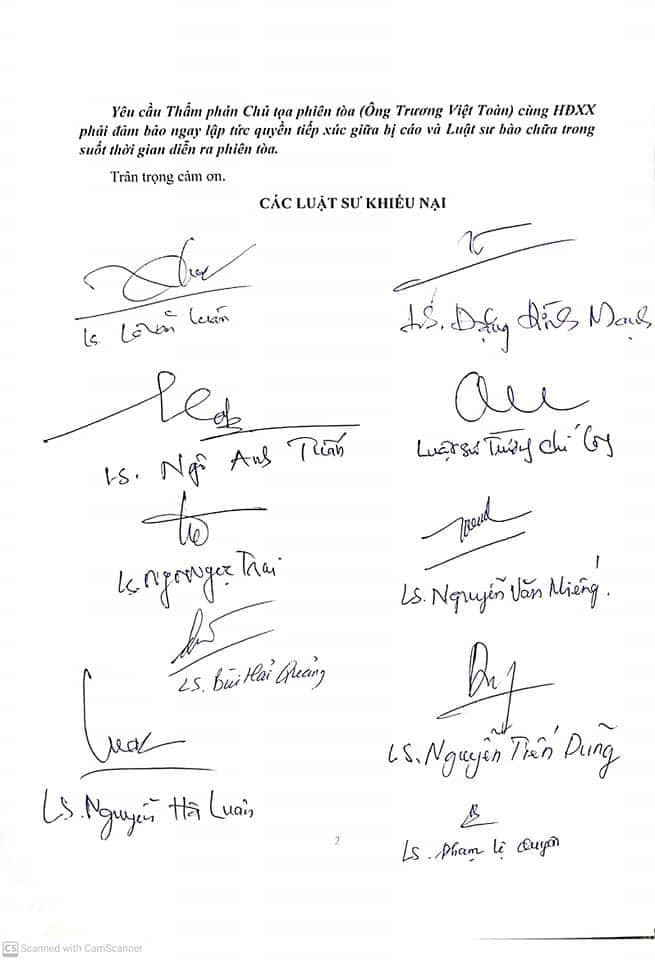 Yêu cầu Thẩm phán Chủ tọa phiên tòa (Ông Trương Việt Toàn) cùng HĐXX
phải đảm bảo ngay lập tức quyền tiếp xúc giữa bị cáo và Luật sư bào chữa trong
suốt thời gian diễn ra phiên tòa.
Trân trọng cảm ơn.
CÁC LUẬT SƯ KHIẾU NẠI
Ls. Lê Văn Luân
LS. Đặng Đình Mạnh
LS. Ngô Anh Tuấn
Luật sư
LS. Ngô Ngọc Trai
LS. Nguyễn Văn Miếng.
LS. Bùi Hải Quảng
LS. Nguyễn Tiến Dũng
LS. Nguyễn Hà Luân
LS. Phạm Lệ Quyên
2
CS Scanned with CamScanner